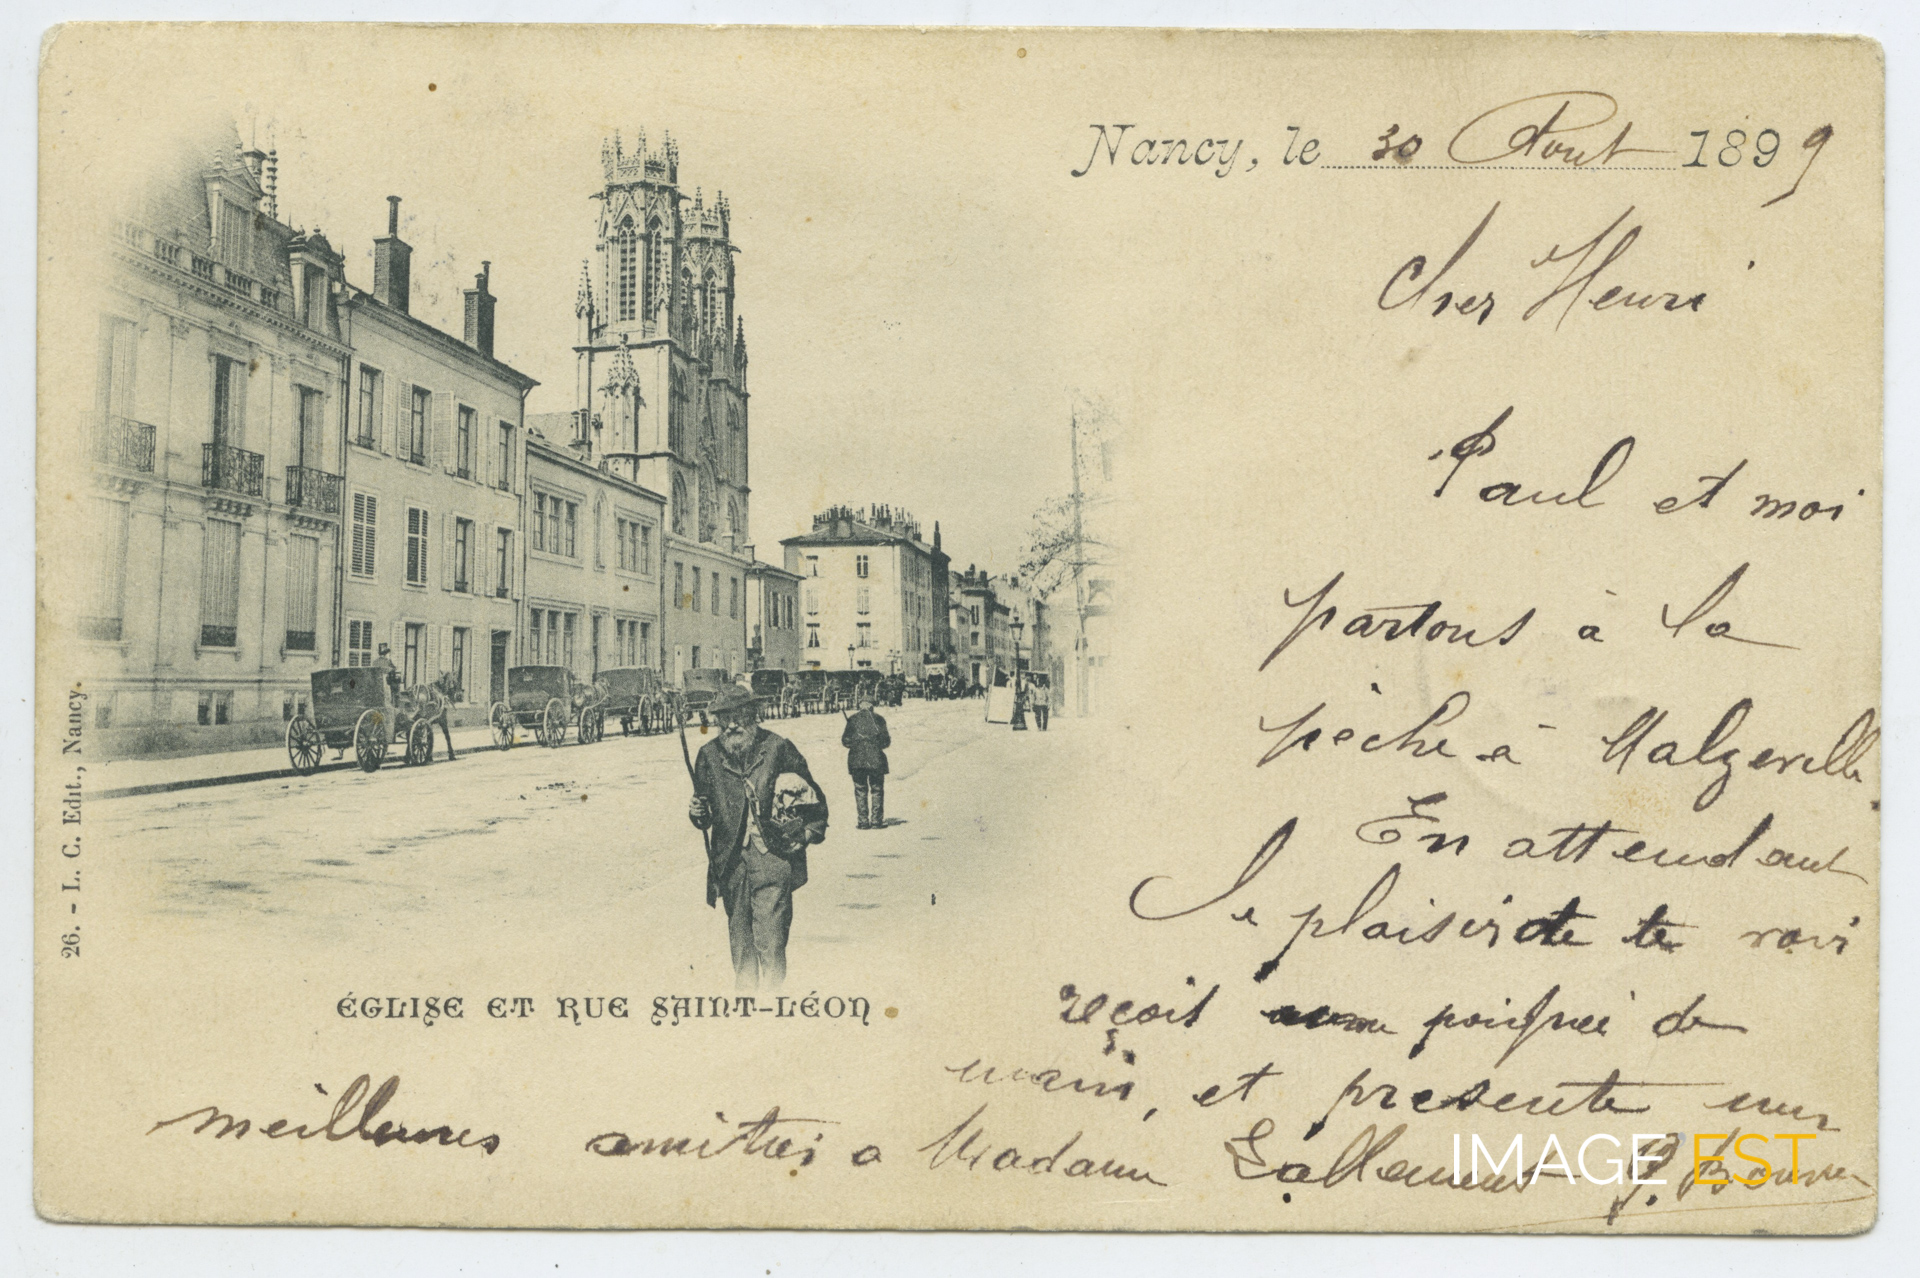 Nancy, le 30 Aout 1899
Cher Henri
Paul et moi
partons à la
pèche à Malzeville
En attendant
le plaisir de te voir
reçoit une poignée de
main, et presente mes
meilleures amitiés a Madame Lallement
ÉGLISE ET RUE SAINT-LÉON
26. - L. C. Edit., Nancy.
IMAGE EST